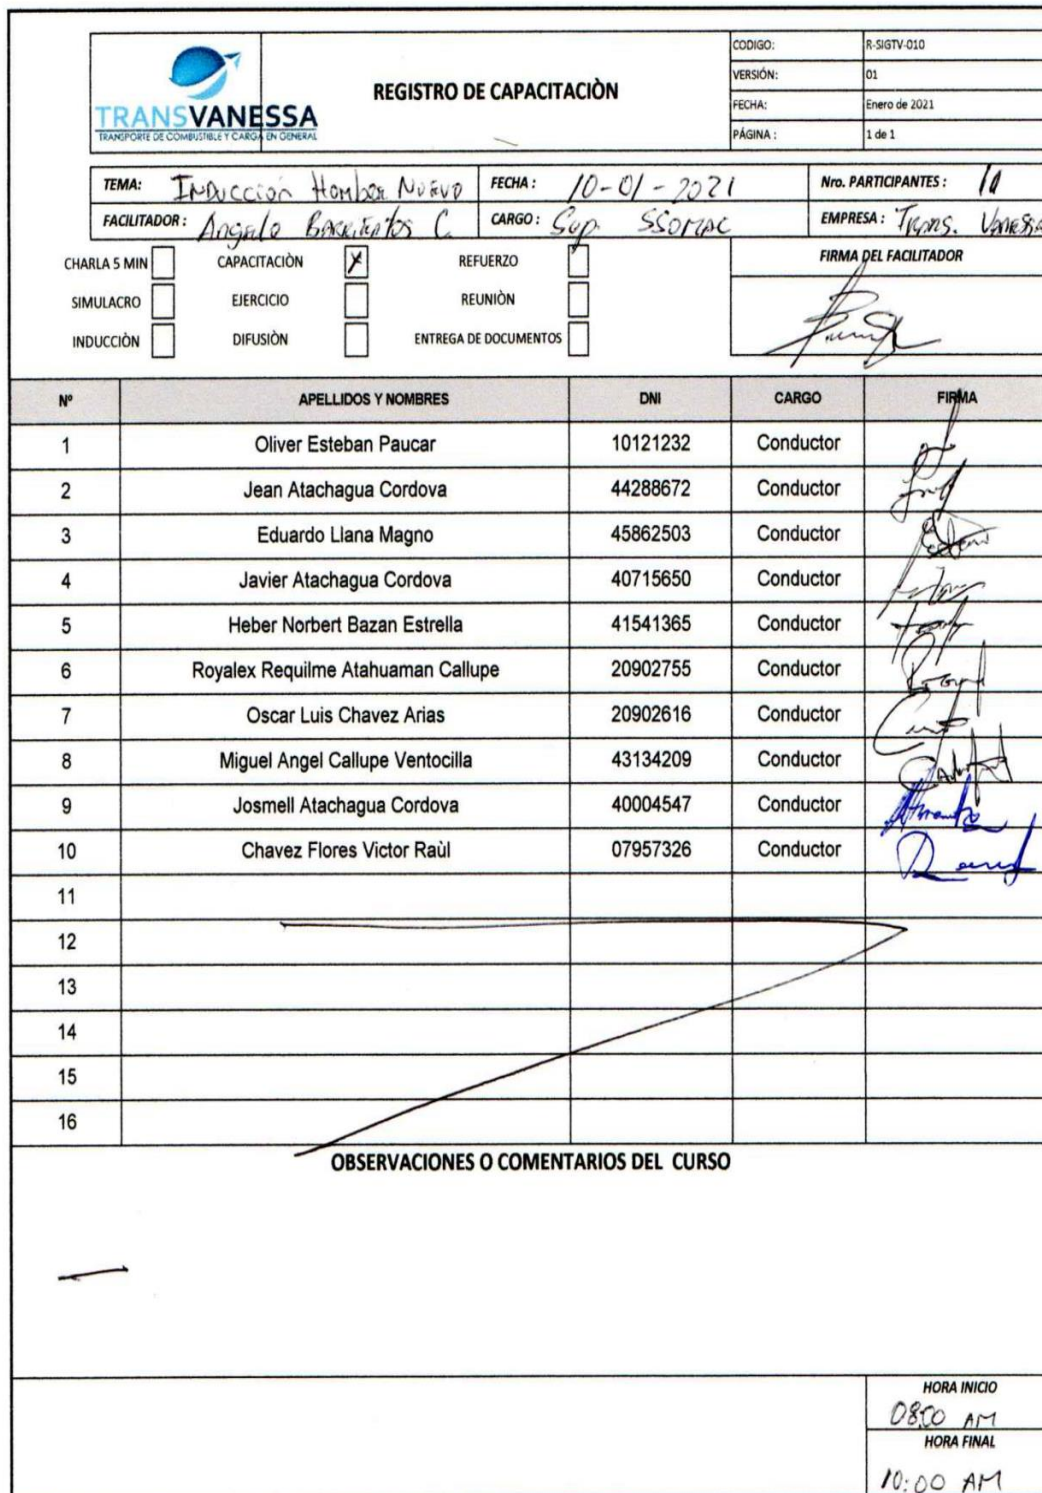 TRANSVANESSA
TRANSPORTE DE COMBUSTIBLE Y CARGA EN GENERAL
REGISTRO DE CAPACITACIÒN
CODIGO: R-SIGTV-010
VERSIÓN: 01
FECHA: Enero de 2021
PÁGINA : 1 de 1
TEMA: Inducción Hombre Nuevo FECHA : 10-01-2021 Nro. PARTICIPANTES : 10
FACILITADOR : Angelo Barrientos C. CARGO : Sup. SSOMAC EMPRESA : Trans. Vanessa
CHARLA 5 MIN CAPACITACIÒN X REFUERZO FIRMA DEL FACILITADOR
SIMULACRO EJERCICIO REUNIÒN
INDUCCIÒN DIFUSIÒN ENTREGA DE DOCUMENTOS
Nº APELLIDOS Y NOMBRES DNI CARGO FIRMA
1 Oliver Esteban Paucar 10121232 Conductor
2 Jean Atachagua Cordova 44288672 Conductor
3 Eduardo Llana Magno 45862503 Conductor
4 Javier Atachagua Cordova 40715650 Conductor
5 Heber Norbert Bazan Estrella 41541365 Conductor
6 Royalex Requilme Atahuaman Callupe 20902755 Conductor
7 Oscar Luis Chavez Arias 20902616 Conductor
8 Miguel Angel Callupe Ventocilla 43134209 Conductor
9 Josmell Atachagua Cordova 40004547 Conductor
10 Chavez Flores Victor Raùl 07957326 Conductor
11
12
13
14
15
16
OBSERVACIONES O COMENTARIOS DEL CURSO
HORA INICIO
08:00 AM
HORA FINAL
10:00 AM